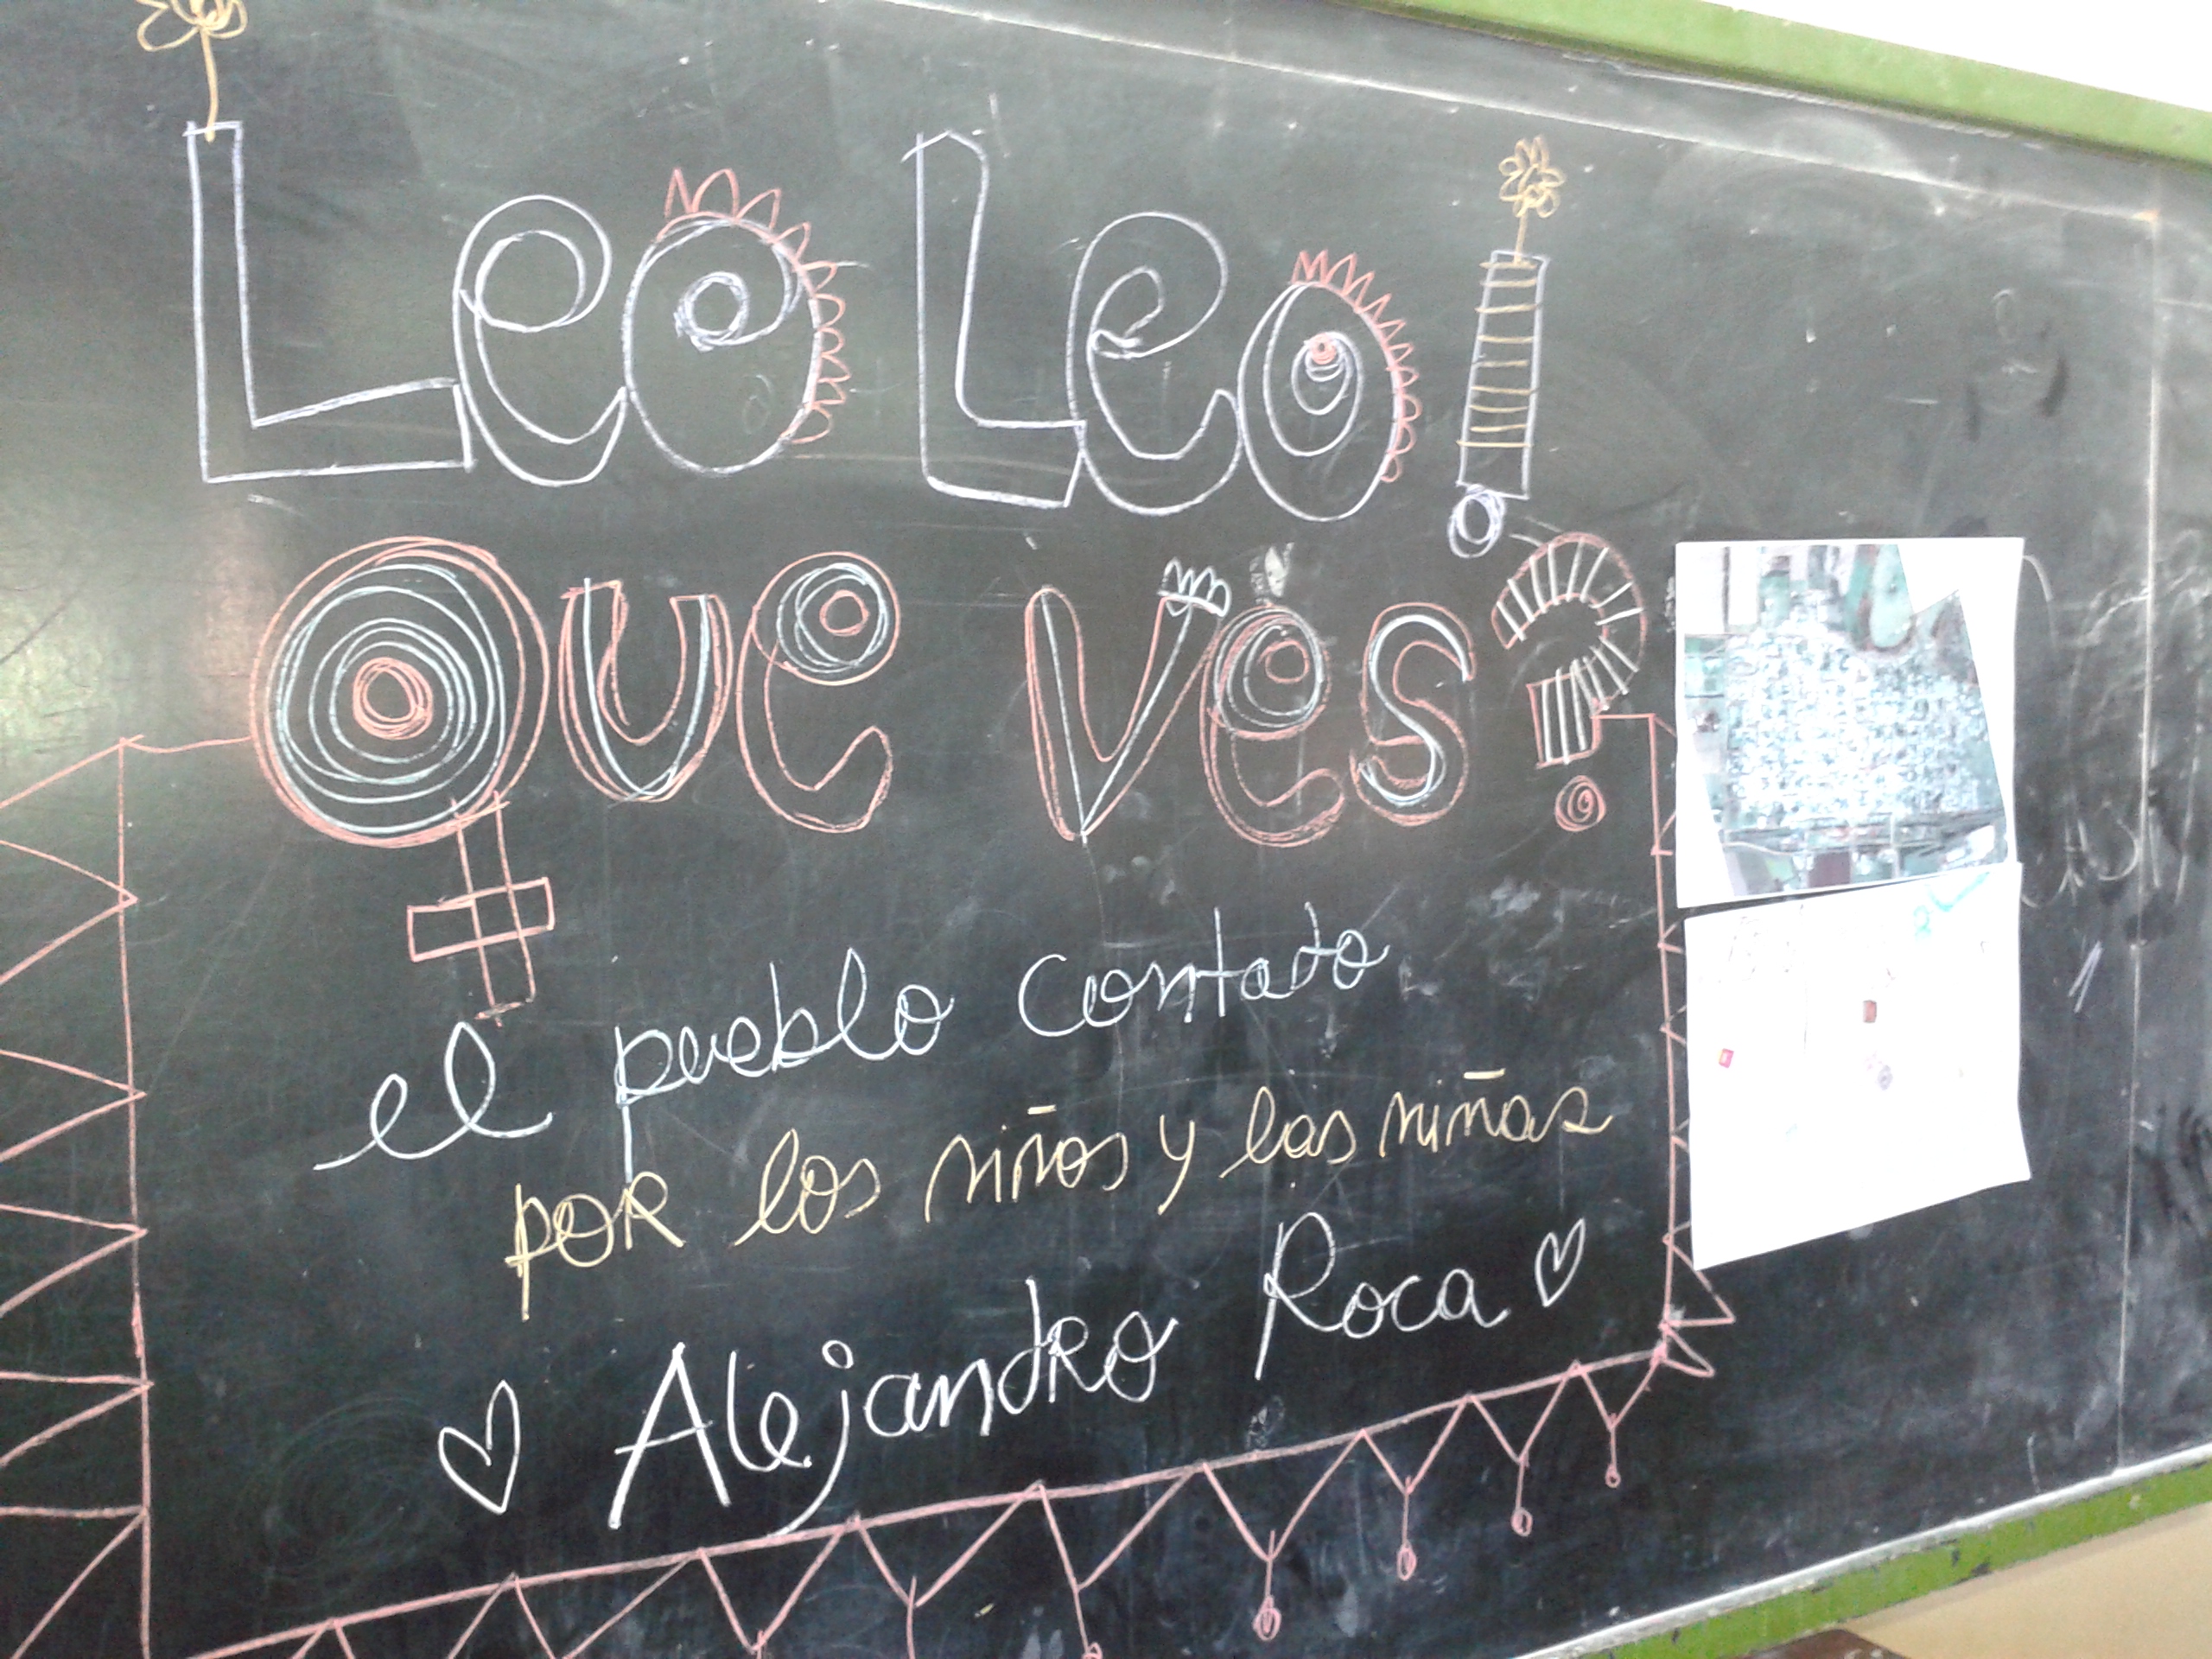 Leo Leo!
Que vès?
el pueblo contado
por los niños y las niñas
Alejandro Roca